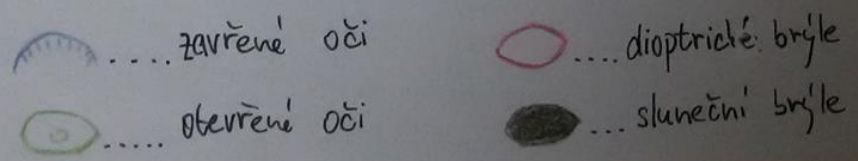 .... zavřené oči
..... otevřené oči
.... dioptrické brýle
... sluneční brýle